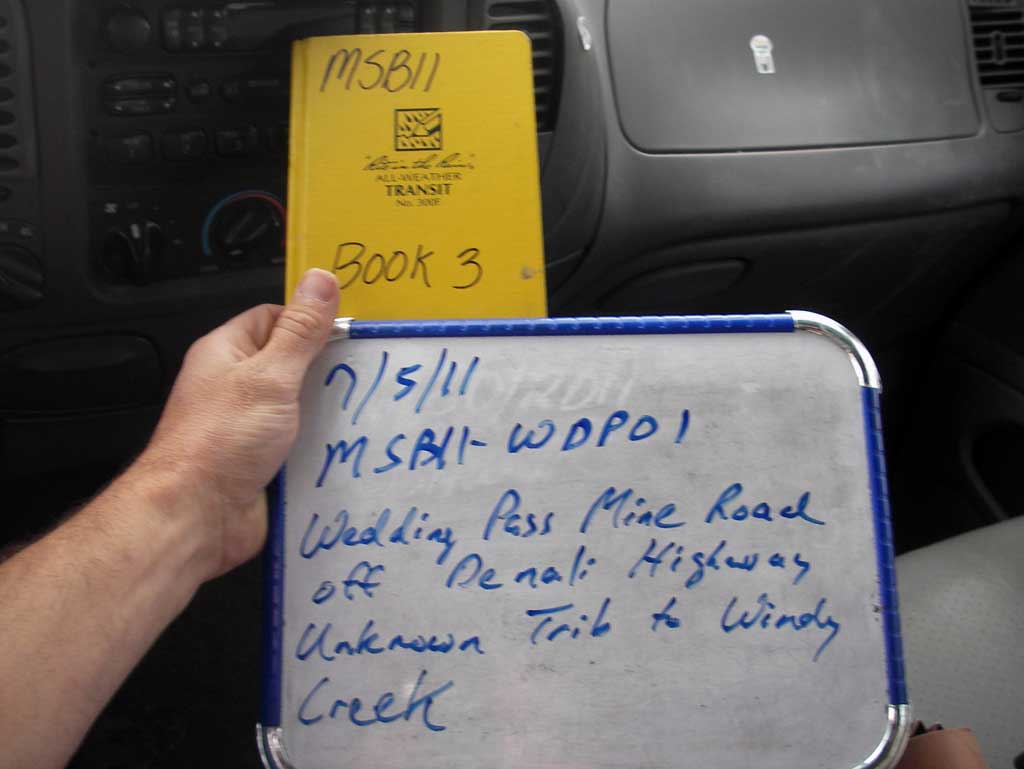 MSB11
"Rite in the Rain"
ALL-WEATHER
TRANSIT
No. 300F
BOOK 3
7/5/11
MSB11-WDP01
Wedding Pass Mine Road
off Denali Highway
Unknown Trib to Windy
Creek